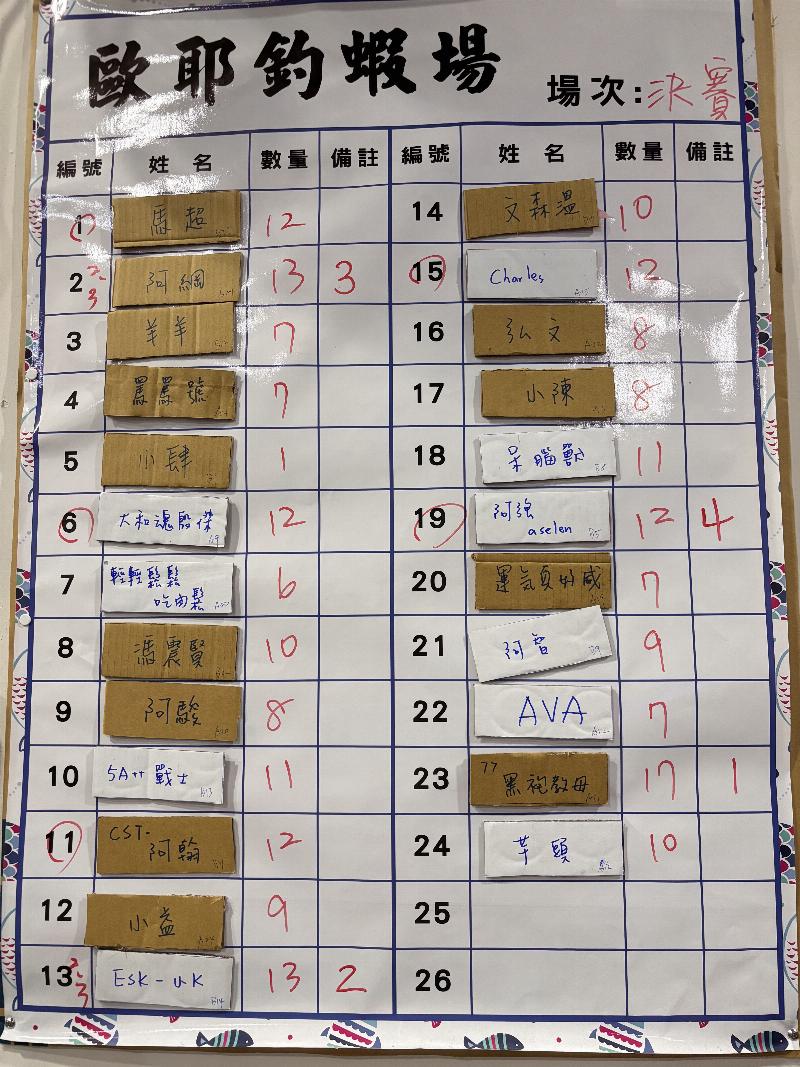 歐耶釣蝦場
場次:決賽
編號 姓名 數量 備註 編號 姓名 數量 備註
1 馬超 12
2 2.3 阿綱 13 3
3 羊羊 7
4 罵罵號 7
5 小肆 1
6 大和魂殷傑 12
7 輕輕鬆鬆 6
吃肉鬆
8 馮震賢 10
9 阿駿 8
10 5A++戰士 11
11 CST- 12
阿翰
12 小益 9
13 2.3 ESK-UK 13 2
14 文森溫 10
15 Charles 12
16 弘文 8
17 小陳 8
18 呆腦獸 11
19 阿強 12 4
aselen
20 運氣真好咸 7
21 阿智 9
22 AVA 7
23 77 黑袍教母 17 1
24 芋頭 10
25
26